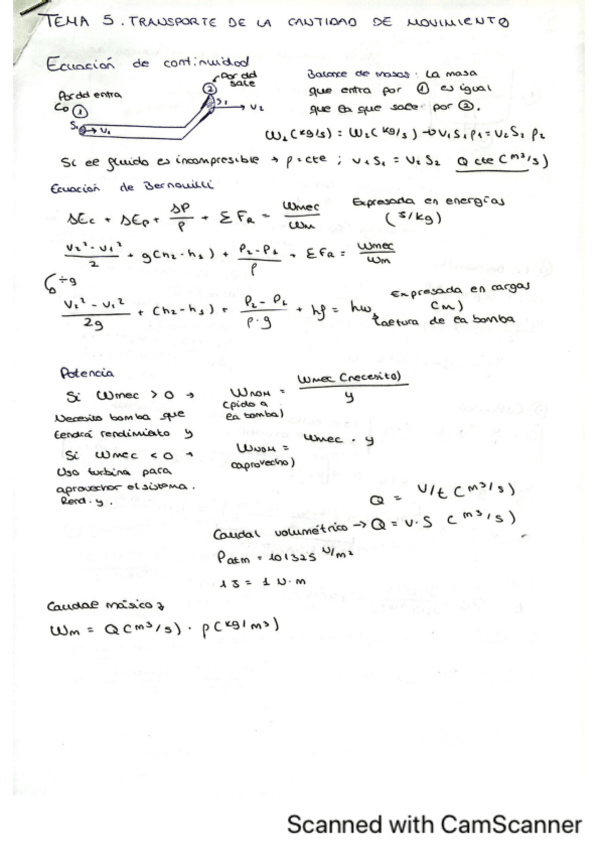 TEMA 5. TRANSPORTE DE LA CANTIDAD DE MOVIMIENTO
Ecuación de continuidad
Por dd sale
Por dd entra
Co ①
②
S₂ → V₂
S₁ → V₁
Balance de masas: La masa
que entra por ① es igual
que la que sale por ②.
W₁(kg/s) = W₂(kg/s) → V₁S₁ρ₁ = V₂S₂ρ₂
Si el fluido es incompresible → ρ = cte ; V₁S₁ = V₂S₂ Q cte (m³/s)
Ecuación de Bernouilli
ΔEc + ΔEp + ΔP/ρ + ΣFR = Wmec/Wm
Expresada en energías
(J/kg)
V₂² - V₁²/2 + g(h₂ - h₁) + P₂ - P₁/ρ + ΣFR = Wmec/Wm
÷g
V₂² - V₁²/2g + (h₂ - h₁) + P₂ - P₁/ρ·g + hf = hw
Expresada en cargas
(m)
factura de la bomba
Potencia
Si Wmec > 0 →
Necesito bomba que
tendrá rendimiento y
WNOM = Wmec (necesito)/y
(pido a
la bomba)
Si Wmec < 0 →
Uso turbina para
aprovechar el sistema.
Rend. y.
WNOM = Wmec · y
(aprovecho)
Q = V/t (m³/s)
Caudal volumétrico → Q = v·S (m³/s)
Patm = 101325 N/m²
1 J = 1 N·m
Caudal másico
Wm = Q(m³/s) · ρ(kg/m³)
Scanned with CamScanner